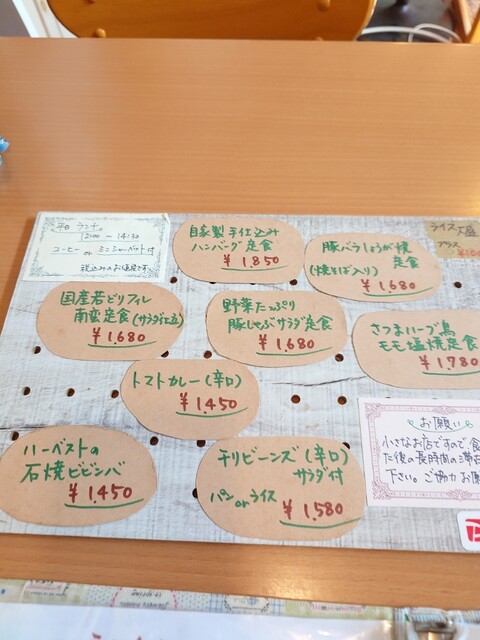 平日 ランチ。
12:00 〜 14:30
コーヒー or ミニシャーベット付
税込みのお値段です。
自家製手仕込み
ハンバーグ定食
¥1.850
豚バラしょうが焼
定食
(焼そば入り)
¥1.680
ライス大盛
プラス
国産若どりフィレ
南蛮定食(サラダ仕立)
¥1.680
野菜たっぷり
豚しゃぶサラダ定食
¥1.680
さつまハーブ鳥
モモ塩焼定食
¥1.780
トマトカレー(辛口)
¥1.450
お願い
小さなお店ですので 食
た後の長時間の滞在
下さい。ご協力お願
ハーベストの
石焼ビビンバ
¥1.450
チリビーンズ(辛口)
サラダ付
パンorライス
¥1.580